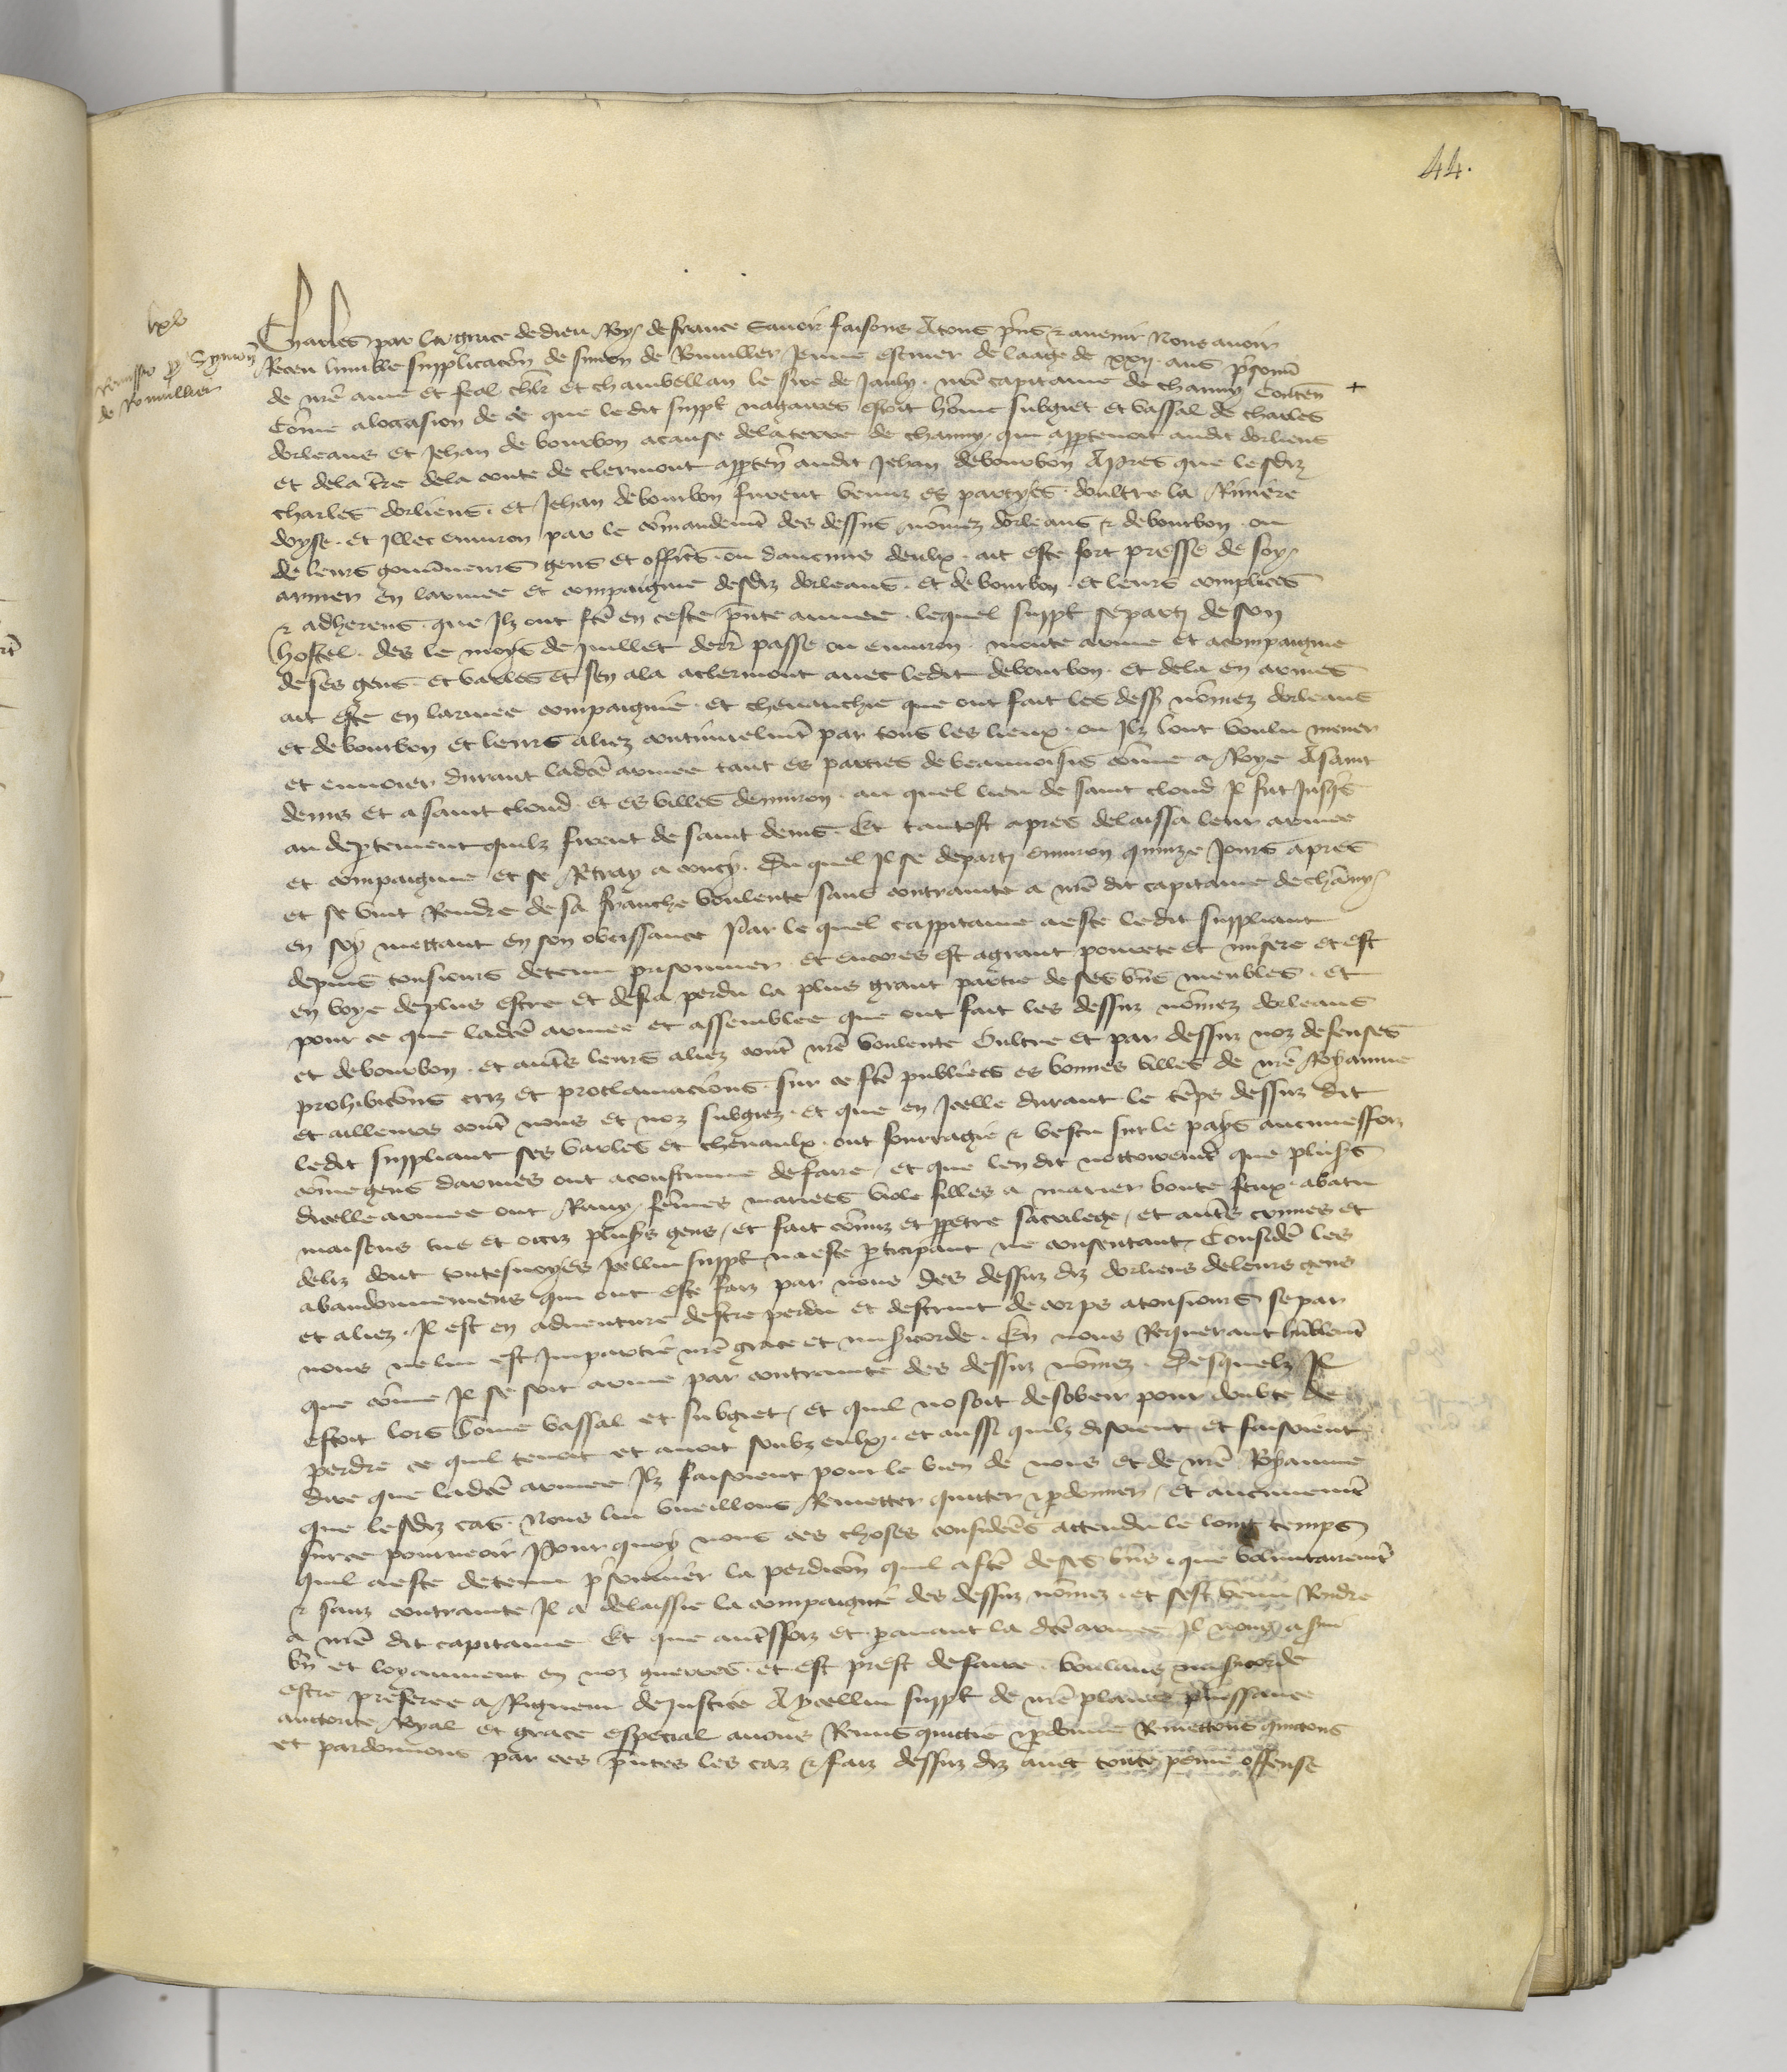 44.
lxv
Remissio pro Symon
de Romuller
Charles par la grace de dieu Roy de france Savoir faisons A tous pñs & avenir Nous avoir
Receu lumble supplicacõn de simon de Romuller Jeune escuier de laage de xxij. ans p̃sonñ
de nr̃e ame et feal chlr̃ et chambellan le sire de Jauly. nr̃e capitaine de chauny Conteñ +
Cõme a loccasion de ce que ledit suppl̃ nagaires estoit hõme subgiet et vassal de charles
dorleans et Jehan de bourbon a cause de la terre de chauny. qui appartenoit audit dorliens
et de la tr̃e de la conte de clermont apparteñ audit Jehan de bourbon Apres que lesdiz
charles dorliens. et Jehan de bourbon furent venuz es partyes doultre la Riviere
doyse. et Illec environ par le cõmandemẽt des dessus nõmez dorleans & de bourbon ou
de leurs gouv̈neurs gens et offic̃s ou daucuns deulx. ait este fort presse de soy
armer en larmee et compaignie desdiz dorleans. et de bourbon. et leurs complices
& adherens. que Ilz ont fc̃e en ceste p̃nte annee. lequel suppl̃ se party de son
hostel. des le moys de Juillet derr̃ passe ou environ. monte arme et acompaigne
de ses gens. et varles et sen ala a clermont avec ledit de bourbon. et dela en armes
ait este en larmee compaignie. et chevauchie que ont fait les dess nõmez dorleans
et de bourbon et leurs aliez continuelmẽt par tous les lieux. ou Ilz lont voulu mener
et envoier durant ladc̃e armee tant es parties de beauvoisis cõme a Roye A saint
denis et a saint cloud. et es villes denviron. au quel lieu de saint cloud Il fut Jusq̃s
au dep̃tement quilz firent de saint denis. Et tantost apres delaissa leur armee
et compaignie et se Retray a coucy. Du quel Il se departy environ quinze Jours apres
et se vint Rendre de sa franche voulente sans contrainte a nr̃e dit capitaine de chauny
en soy mettant en son obeissance Par le quel cappitaine a este ledit suppliant
depuis tousiours detenu prisonnier. et encores est a grant povrete et misere et est
en voye de plus estre et desia perdu la plus grant partie de ses bñs meubles. et
pour ce que ladc̃e armee et assemblee que ont fait les dessuz nõmez dorleans
et de bourbon. et autr̃s leurs aliez contr̃ nr̃e voulente Oultre et par dessuz noz defenses
prohibicõns criz et proclamacions. sur ce fc̃es publiees es bonnes villes de nr̃e Royaume
et ailleurs contr̃ nous et noz subgiez. et que en Icelle durant le tẽps dessuz dit
ledit suppliant ses varles et chevaulx. ont fourragie & vescu sur le pays aucuneffoiz
cõme gens darmes ont acoustume de faire / et que len dit nottoiremẽt que plus̃s
dicelle armee ont Ravy. fẽmes mariees viole filles a marier boute feux. abatu
maisons tue et occiz plus̃s gens / et fait cõmiz et perpetre sacrilege / et autr̃s crimes et
deliz dont toutesvoyes Icellui suppl̃ na este p̃ticipant ne consentant. Consider̃ les
abandonnemens qui ont este faiz par nous des dessuz diz dorliens de leurs gens
et aliez. Il est en adventure destre perdu et destruit de corps a tousiours se par
nous ne lui est Impartie nr̃e grace et mis̃icorde. En nous Requerant hũblemẽt
que cõme Il se soit arme par contrainte des dessuz nõmez. Desquelz Il
estoit lors hõme vassal et subgiet / et quil nosoit desobeir pour doubte de
perdre ce quil tenoit et avoit soubz eulx. et aussi quilz disoient et faisoient
dire que ladc̃e armee Ilz faisoient pour le bien de nous et de nr̃e Royaume
que lesdiz cas. Nous lui vueillons Remetter quitter & p̃donner / Et aucunemẽt
sur ce pourveoir Pour quoy nous ces choses consider̃s attendu le long temps
quil a este detenu p̃sonnier la perdicõn quil a fc̃e de ses bñs. que voluntairemẽt
& sanz contrainte Il a delaissie la compaignie des dessuz nõmez. et sest venu Rendre
a nr̃e dit capitaine Et que autr̃ffoiz et p̃avant la dc̃e armee Il nous a s̃vi
bñ et loyaument en noz guerres. et est prest de faire. Voulans mis̃icorde
estre preferee a Rigueur de Justice A Ycellui suppl̃ de nr̃e plaine puissance
auctorite Royal et grace especial avons Remis quittie & p̃donne Remettons quictons
et pardonnons par ces p̃ntes les caz & faiz dessuz diz avec toute peine offense